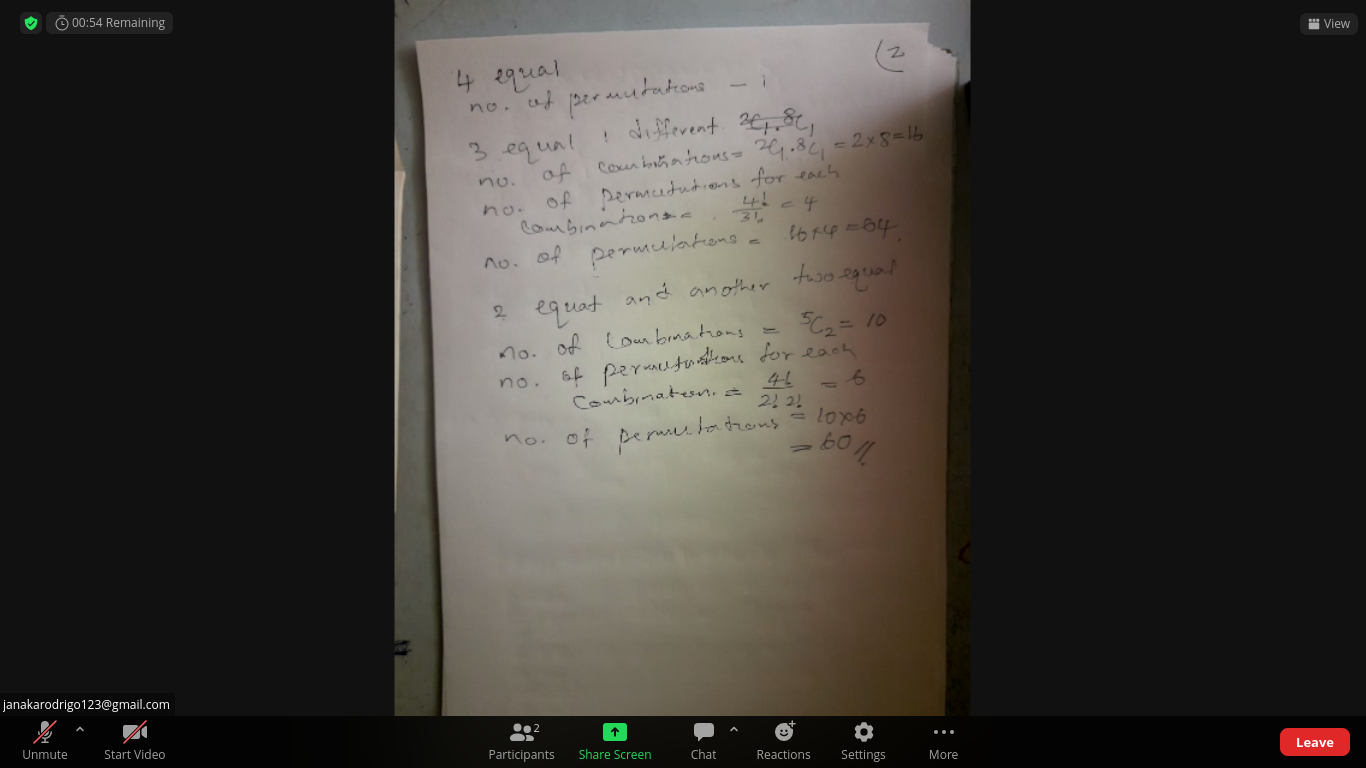 00:54 Remaining
View
(2
4 equal
no. of permutations – 1
3 equal 1 different ²C₁.⁸C₁
no. of combinations = ²C₁.⁸C₁ = 2×8=16
no. of permutations for each
combinations = 4!/3! = 4
no. of permutations = 16×4 = 64.
2 equal and another two equal
no. of combinations = ⁵C₂ = 10
no. of permutations for each
combination. = 4!/2! 2! = 6
no. of permutations = 10×6
= 60 //
janakarodrigo123@gmail.com
2
Unmute
Start Video
Participants
Share Screen
Chat
Reactions
Settings
More
Leave